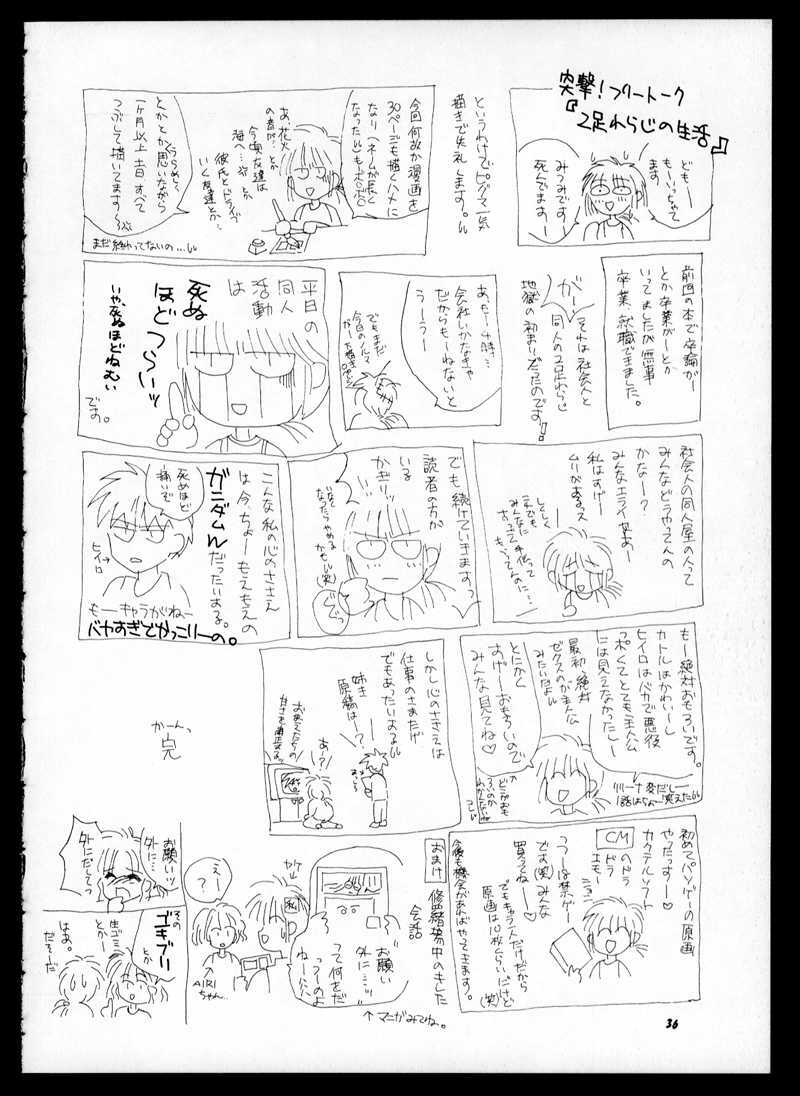 突撃!フリートーク
『2足わらじの生活』
どもー
もーいっちゃて
ます
みつみです
死んでますー
というわけでピンマー気
描きで失礼します。
今回何故か漫画を
30ページも描くハメに
なり(ネームが長く
なった)もボロボロ
あ、花火
の音が…とか
今頃友達は
海へ…とか
彼氏とドライブ
いく友達とか…
うらめしく
とかとか思いながら
一ヶ月以上土日すべて
つぶして描いてます〜
まだ終わってないの…
前回の本で卒論がー
とか卒業がーとか
いってましたが無事
卒業、就職できました。
がーっ
それは社会人と
同人の2足わらじ
地獄の初まりだったのです!
あ、もー4時…
会社いかなきゃ
だからもーねないと
うーうー
でもまだ
今日のノルマ
平日の
同人
活動
は
死ぬ
ほど
つらいッ
いや、死ぬほどねむい
です。
社会人の同人屋の人って
みんなどうやってんの
かなー?
みんなエライなあー
私はすげー
ムリがあるッス
しくしく
これでも
みんなに
手伝って
もらってんのに…
でも続けていきますっ
読者の方が
いる
かぎりッ
いなく
なったらやめる
かもしれん(笑)
こんな私の心のささえ
は今ちょーもえもえの
ガニダムW
だったいよる。
死ぬほど
痛いぞ
ヒイロ
もーキャラがいねー
バヤすぎでかっこりーの。
もー絶対おもろいです。
カトルはかわいーし
ヒイロはバカで悪役
っぽくてとても主人公
には見えなかったしー
最初絶対
ゼクスのが主人公
みたいだよ
とにかく
すげーおもろいので
みんな見てね♡
リリーナ変だしー
1話はちょー笑えた
とか
どこがおも
ろいのか
わかんないね
しかし心のささえは
仕事のさまたげ
でもあったいよる
姉キ
原稿は…?
あ?
初めてパソゲーの原画
やったっすー♡
カクテルソフト
CM
のドラ
ドラ
エモーション
うつーは禁ゲー
です(笑)みんな
買ってねー♡
でもキャラ一人だけだから
原画は10枚くらいだけど
(笑)
今後も機会があればやってきます。
おまけ
修羅場中のきした
会話
お願い
外に…ッ
って何をだ
っつーのよ
ねー
ヤケ
私
えー
?
AIRI
ちゃん
↑マニがみてね。
お願いッ
外に…
外にだしてっ
その
ゴキブリ
とか
生ゴミ
とかー
はあ。
だそーだ
がーんっ
完
36